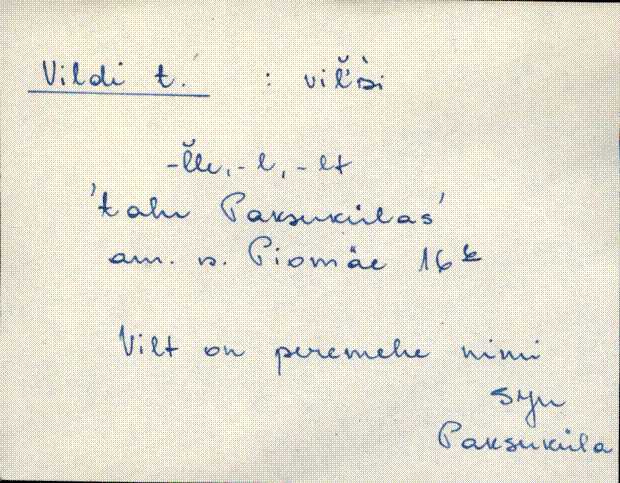 Vildi t. : vil̆'ᴅi
-l̆le, -l, -lt
'talu Paksukülas'
am. n. Piomäe 16ᵏ
Vilt on peremehe nimi
SJn
Paksuküla